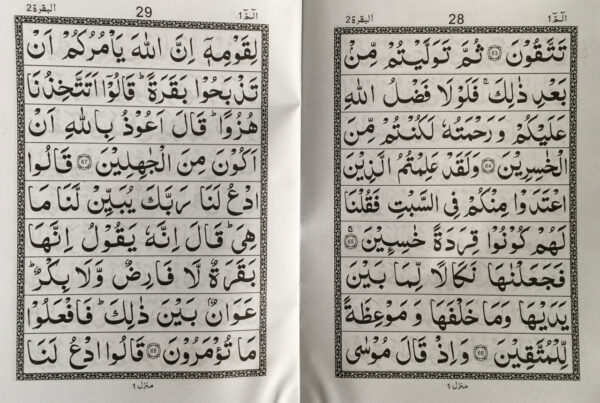 البقرة ٢
28
الٓمّٓ ١
تَتَّقُوْنَ ﴿٦٣﴾ ثُمَّ تَوَلَّيْتُمْ مِّنْۢ
بَعْدِ ذٰلِكَ ۚ فَلَوْلَا فَضْلُ اللّٰهِ
عَلَيْكُمْ وَرَحْمَتُهٗ لَكُنْتُمْ مِّنَ
الْخٰسِرِيْنَ ﴿٦٤﴾ وَلَقَدْ عَلِمْتُمُ الَّذِيْنَ
اعْتَدَوْا مِنْكُمْ فِي السَّبْتِ فَقُلْنَا
لَهُمْ كُوْنُوْا قِرَدَةً خٰسِـِٕيْنَ ﴿٦٥﴾ۚ
فَجَعَلْنٰهَا نَكَالًا لِّمَا بَيْنَ
يَدَيْهَا وَمَا خَلْفَهَا وَمَوْعِظَةً
لِّلْمُتَّقِيْنَ ﴿٦٦﴾ وَاِذْ قَالَ مُوْسٰى
منزل ١
البقرة ٢
29
الٓمّٓ ١
لِقَوْمِهٖۤ اِنَّ اللّٰهَ يَاْمُرُكُمْ اَنْ
تَذْبَحُوْا بَقَرَةً ؕ قَالُوْۤا اَتَتَّخِذُنَا
هُزُوًا ؕ قَالَ اَعُوْذُ بِاللّٰهِ اَنْ
اَكُوْنَ مِنَ الْجٰهِلِيْنَ ﴿٦٧﴾ قَالُوا
ادْعُ لَنَا رَبَّكَ يُبَيِّنْ لَّنَا مَا
هِيَ ؕ قَالَ اِنَّهٗ يَقُوْلُ اِنَّهَا
بَقَرَةٌ لَّا فَارِضٌ وَّلَا بِكْرٌ ؕ
عَوَانٌۢ بَيْنَ ذٰلِكَ ؕ فَافْعَلُوْا
مَا تُؤْمَرُوْنَ ﴿٦٨﴾ قَالُوا ادْعُ لَنَا
منزل ١